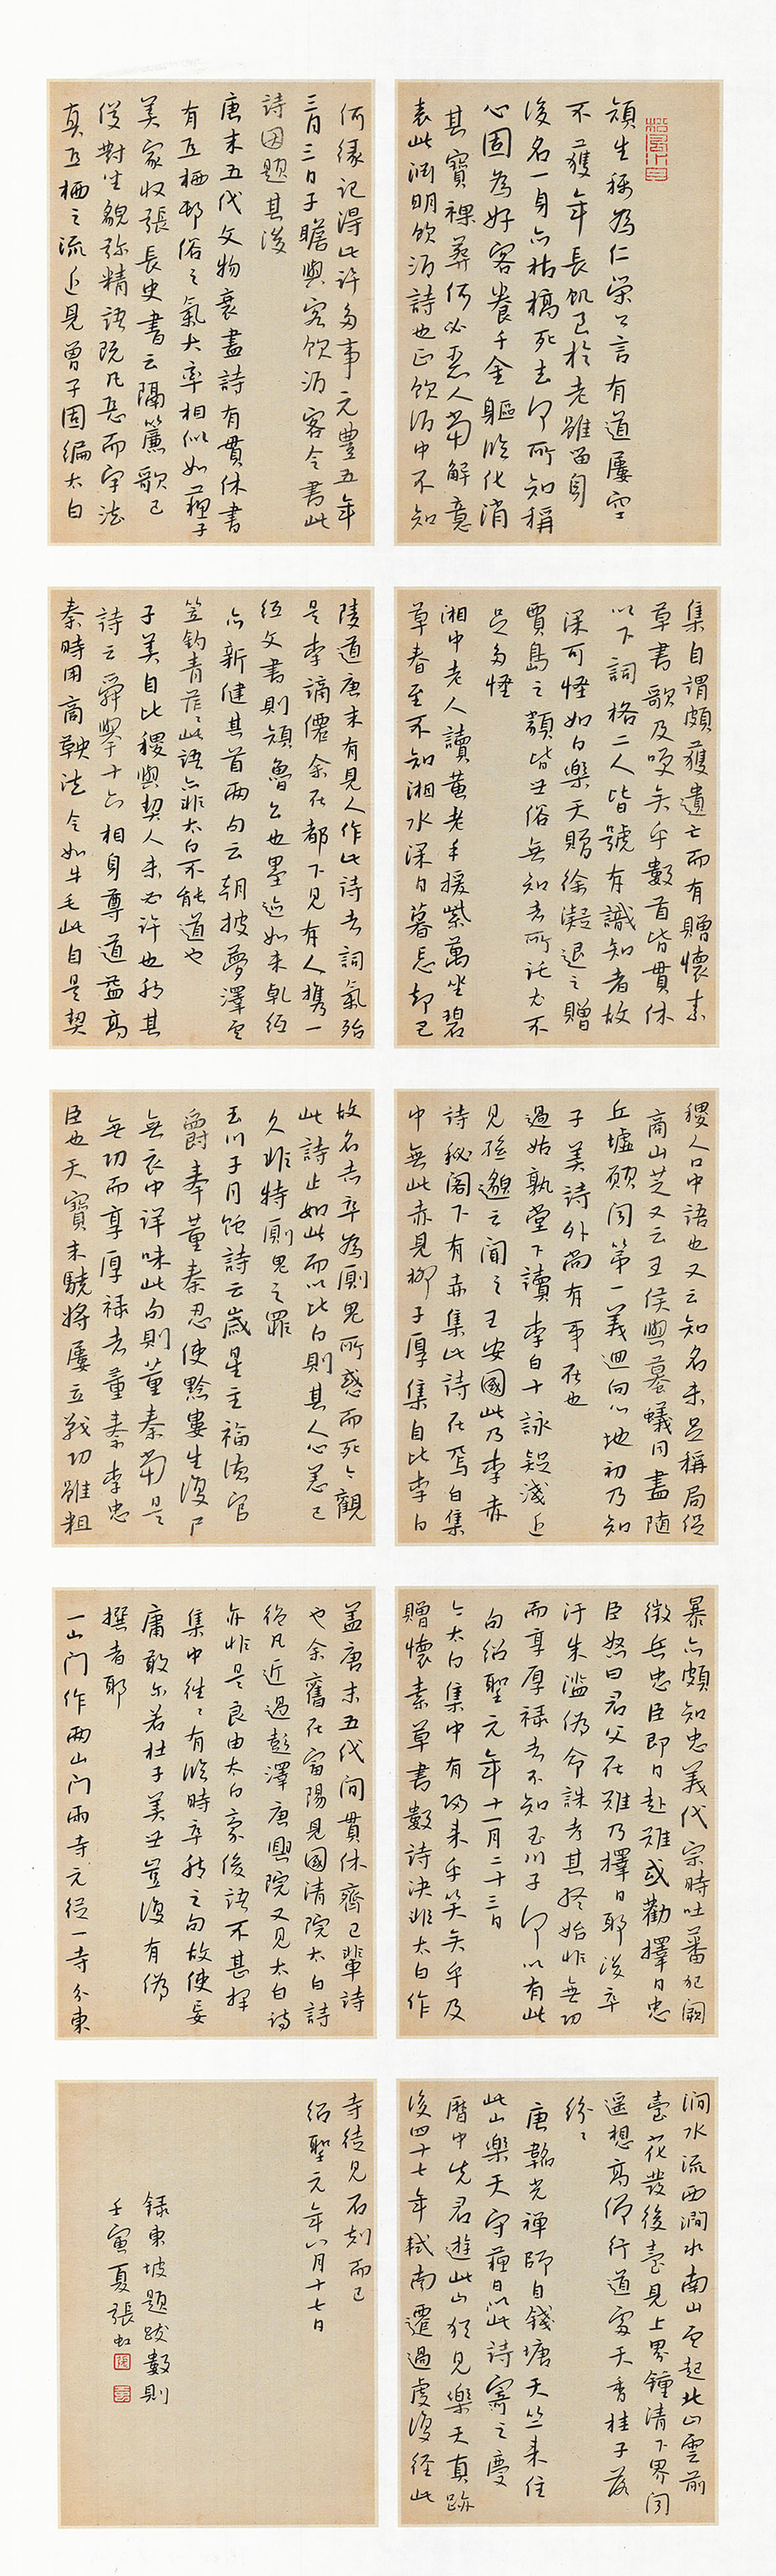 顔生稱為仁榮公言有道屢空
不獲年長飢至於老雖留身
後名一身亦枯槁死去何所知稱
心固為好客養千金軀臨化消
其寶裸葬何必惡人當解意
表此淵明飲酒詩也正飲酒中不知
何緣記得此許多事元豐五年
三月三日子瞻與客飲酒客令書此
詩因題其後
唐末五代文物衰盡詩有貫休書
有亞栖村俗之氣大率相似如蘇子
美家收張長史書云隔簾歌已
俊對坐貌弥精語既凡惡而字法
真亞栖之流近見曾子固編太白
集自謂頗獲遺亡而有贈懷素
草書歌及哭矣乎數首皆貫休
以下詞格二人皆號有識知者故
深可怪如白樂天贈徐凝退之贈
賈島之類皆世俗無知者所託尤不
足多怪
湘中老人讀黃老手援紫蔂坐碧
草春至不知湘水深日暮忘却巴
陵道唐末有見人作此詩者詞氣殆
是李謫僊余在都下見有人攜一
紙文書則顔魯公也墨迹如未乾紙
亦新健其首兩句云朝披夢澤雲
笠釣青茫茫此語亦非太白不能道也
子美自比稷與契人未必許也然其
詩云舜舉十六相身尊道益高
秦時用商鞅法令如牛毛此自是契
稷人口中語也又云知名未足稱局促
商山芝又云王侯與螻蟻同盡隨
丘墟願聞第一義迴向心地初乃知
子美詩外尚有事在也
過姑孰堂下讀李白十詠疑淺近
見孫邈云聞之王安國此乃李赤
詩秘閣下有赤集此詩在焉白集
中無此赤見柳子厚集自比李白
故名赤卒為厠鬼所惑而死今觀
此詩止如此而以比白則其人心恙已
久非特厠鬼之罪
玉川子月蝕詩云歲星主福德官
爵奉董秦忍使黔婁生覆尸
無衣巾詳味此句則董秦當是
無功而享厚祿者董秦李忠
臣也天寶末驍將屢立戰功雖粗
暴亦頗知忠義代宗時吐蕃犯闕
徵兵忠臣即日赴難或勸擇日忠
臣怒曰君父在難乃擇日耶後卒
汙朱滥偽命誅考其終始非無功
而享厚祿者不知玉川子何以有此
句紹聖元年十一月二十三日
今太白集中有歸來乎笑矣乎及
贈懷素草書數詩決非太白作
蓋唐末五代間貫休齊己輩詩
也余舊在富陽見國清院太白詩
絕凡近過彭澤唐興院又見太白詩
亦非是良由太白豪俊語不甚擇
集中往往有臨時率然之句故使妄
庸敢尔若杜子美世豈復有偽
撰者耶
一山門作兩山門兩寺元從一寺分東
澗水流西澗水南山雲起北山雲前
臺花發後臺見上界鐘清下界聞
遥想高僧行道處天香桂子落
紛紛
唐韜光禪師自錢塘天竺來住
此山樂天守蘇日以此詩寄之慶
曆中先君遊此山猶見樂天真跡
後四十七年軾南遷過虔復經此
寺徒見石刻而已
紹聖元年八月十七日
録東坡題跋數則
壬寅夏張虹